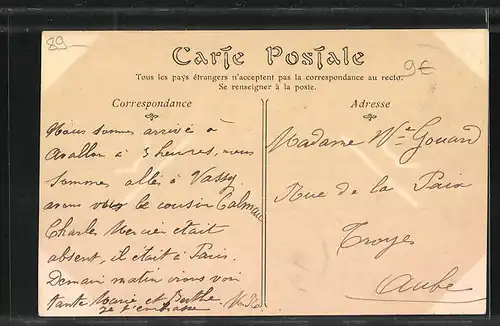 89-
Carte Postale
9€
Tous les pays étrangers n'acceptent pas la correspondance au recto.
Se renseigner à la poste.
Correspondance
Nous sommes arrivé à
Avallon à 3 heures, nous
sommes allés à Vassy
avons vu le cousin Calman
Charles Mercier était
absent, il était à Paris.
Demain matin irons voir
tante Marie et Berthe
je t'embrasse
Adresse
Madame Vve Gouard
Rue de la Paix
Troyes
Aube